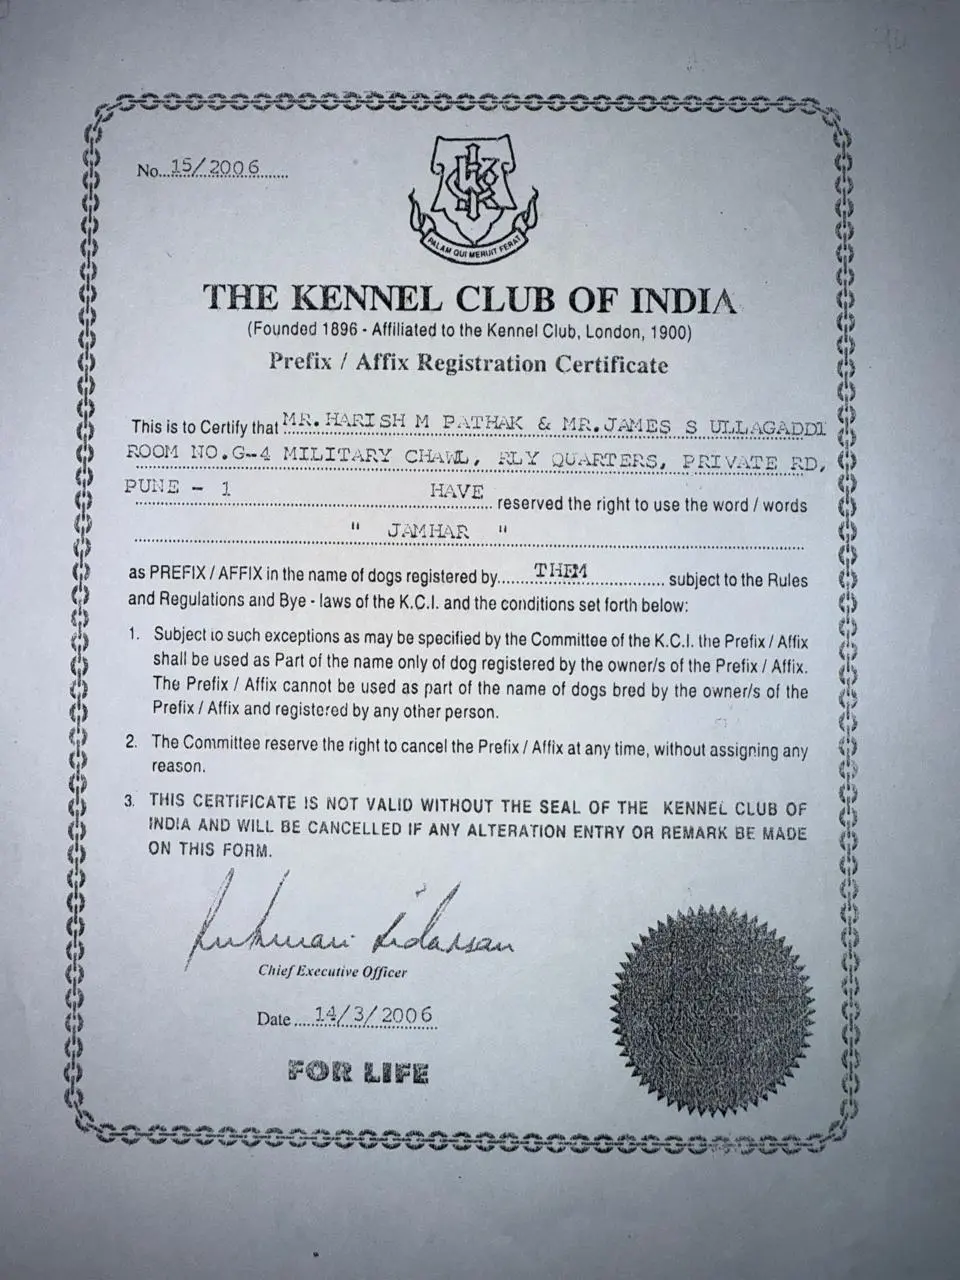 No...15/2006......
PALAM QUI MERUIT FERAT
THE KENNEL CLUB OF INDIA
(Founded 1896 - Affiliated to the Kennel Club, London, 1900)
Prefix / Affix Registration Certificate
This is to Certify that MR. HARISH M PATHAK & MR.JAMES S ULLAGADDI
ROOM NO.G-4 MILITARY CHAWL, RLY QUARTERS, PRIVATE RD,
PUNE - 1 HAVE reserved the right to use the word / words
" JAMHAR "
as PREFIX / AFFIX in the name of dogs registered by...... THEM ............ subject to the Rules
and Regulations and Bye - laws of the K.C.I. and the conditions set forth below:
1. Subject to such exceptions as may be specified by the Committee of the K.C.I. the Prefix / Affix
shall be used as Part of the name only of dog registered by the owner/s of the Prefix / Affix.
The Prefix / Affix cannot be used as part of the name of dogs bred by the owner/s of the
Prefix / Affix and registered by any other person.
2. The Committee reserve the right to cancel the Prefix / Affix at any time, without assigning any
reason.
3. THIS CERTIFICATE IS NOT VALID WITHOUT THE SEAL OF THE KENNEL CLUB OF
INDIA AND WILL BE CANCELLED IF ANY ALTERATION ENTRY OR REMARK BE MADE
ON THIS FORM.
Chief Executive Officer
Date ....14/3/2006
FOR LIFE